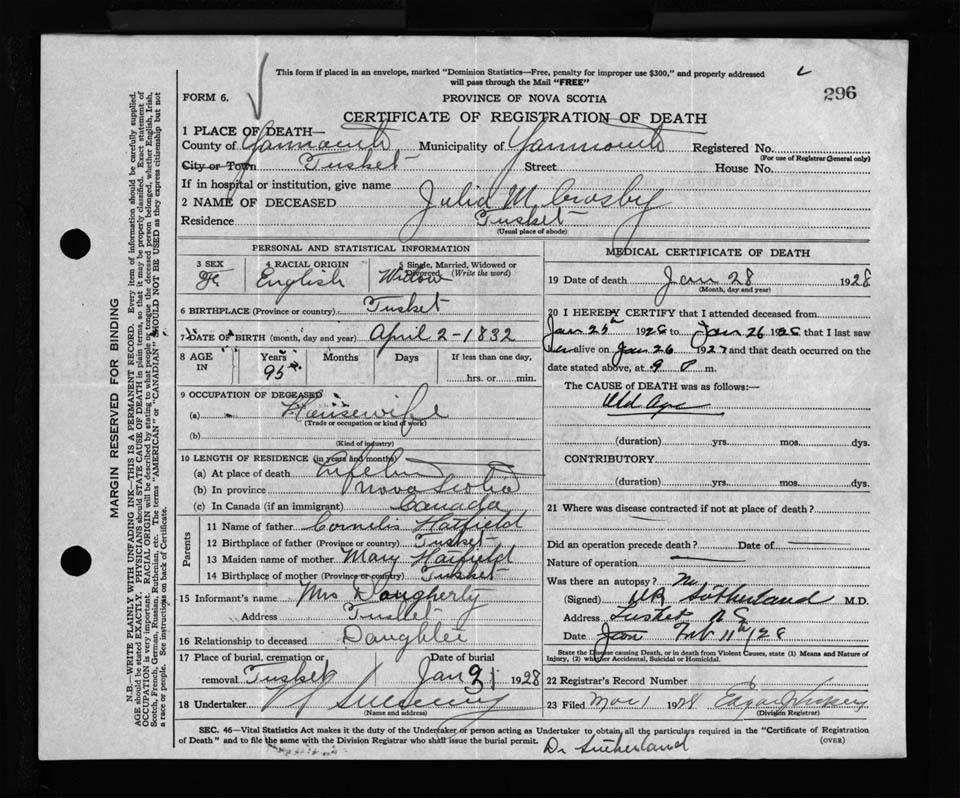 This form if placed in an envelope, marked "Dominion Statistics—Free, penalty for improper use $300," and properly addressed
will pass through the Mail "FREE"
296
FORM 6.
PROVINCE OF NOVA SCOTIA
CERTIFICATE OF REGISTRATION OF DEATH
1 PLACE OF DEATH—
County of Yarmouth Municipality of Yarmouth Registered No.
(For use of Registrar General only)
City or Town Tusket Street House No.
If in hospital or institution, give name
2 NAME OF DECEASED Julia M. Crosby
Residence Tusket
(Usual place of abode)
PERSONAL AND STATISTICAL INFORMATION
3 SEX 4 RACIAL ORIGIN 5 Single, Married, Widowed or Divorced (Write the word)
Fe English Widow
6 BIRTHPLACE (Province or country) Tusket
7 DATE OF BIRTH (month, day and year) April 2-1832
8 AGE IN Years Months Days If less than one day,
95 hrs. or min.
9 OCCUPATION OF DECEASED
(a) Housewife
(Trade or occupation or kind of work)
(b)
(Kind of industry)
10 LENGTH OF RESIDENCE (in years and months)
(a) At place of death
(b) In province Nova Scotia
(c) In Canada (if an immigrant) Canada
Parents
11 Name of father Cornelis Hatfield
12 Birthplace of father (Province or country) Tusket
13 Maiden name of mother Mary Hatfield
14 Birthplace of mother (Province or country) Tusket
15 Informant's name Mrs Dougherty
Address Tusket
16 Relationship to deceased Daughter
17 Place of burial, cremation or Date of burial
removal Tusket Jan 31 1928
18 Undertaker
(Name and address)
MEDICAL CERTIFICATE OF DEATH
19 Date of death Jan 28 1928
(Month, day and year)
20 I HEREBY CERTIFY that I attended deceased from
Jan 25th 1928 to Jan 26 1928 that I last saw
her alive on Jan 26 1927 and that death occurred on the
date stated above, at 9 P m.
The CAUSE OF DEATH was as follows:
Old Age
(duration) yrs. mos. dys.
CONTRIBUTORY
(duration) yrs. mos. dys.
21 Where was disease contracted if not at place of death?
Did an operation precede death? Date of
Nature of operation
Was there an autopsy? No
(Signed) Sutherland M.D.
Address Tusket N S
Date Jan Feb 11th/28
State the Disease causing Death, or in death from Violent Causes, state (1) Means and Nature of
Injury, (2) whether Accidental, Suicidal or Homicidal.
22 Registrar's Record Number 6
23 Filed Mar 1 1928
(Division Registrar)
SEC. 46—Vital Statistics Act makes it the duty of the Undertaker or person acting as Undertaker to obtain, all the particulars required in the "Certificate of Registration
of Death" and to file the same with the Division Registrar who shall issue the burial permit. (OVER)
Dr Sutherland
MARGIN RESERVED FOR BINDING
N.B.—WRITE PLAINLY WITH UNFADING INK—THIS IS A PERMANENT RECORD. Every item of information should be carefully supplied.
AGE should be stated EXACTLY. PHYSICIANS should STATE CAUSE OF DEATH in plain terms, so that it may be properly classified. Exact statement of
OCCUPATION is very important. RACIAL ORIGIN will be described by stating to what people or tongue the deceased person belonged, whether English, Irish,
Scotch, French, German, Russian, Ruthenian, etc. The terms "AMERICAN" or "CANADIAN" SHOULD NOT BE USED as they express citizenship but not
a race or people. See instructions on back of Certificate.